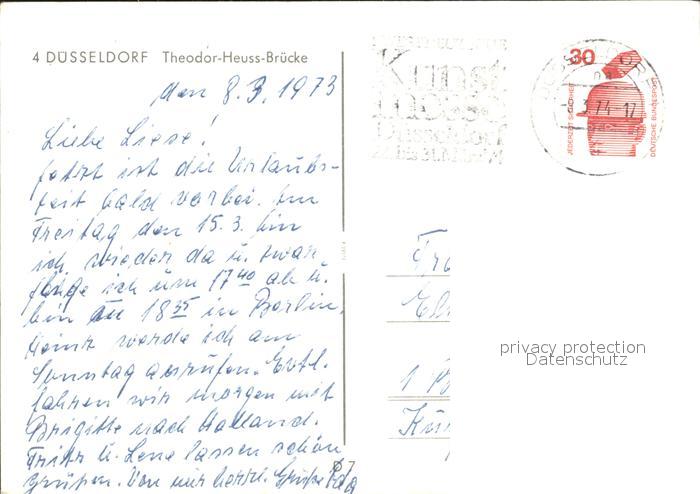 4 DÜSSELDORF Theodor-Heuss-Brücke
den 8.3.1973
Liebe Liese!
Jetzt ist die Urlaubs-
zeit bald vorbei. Am
Freitag den 15.3. bin
ich wieder da u. zwar
fliege ich um 17 40 ab u.
bin um 18 55 in Berlin.
Heinz werde ich am
Sonntag anrufen. Evtl.
fahren wir morgen mit
Brigitte nach Holland.
Fritz u. Lene lassen schön
grüßen. Von mir herzl. Grüße
Kunst
messe
Düsseldorf
30
JEDERZEIT SICHERHEIT
DEUTSCHE BUNDESPOST
3.74-17
Fra
1
privacy protection
Datenschutz